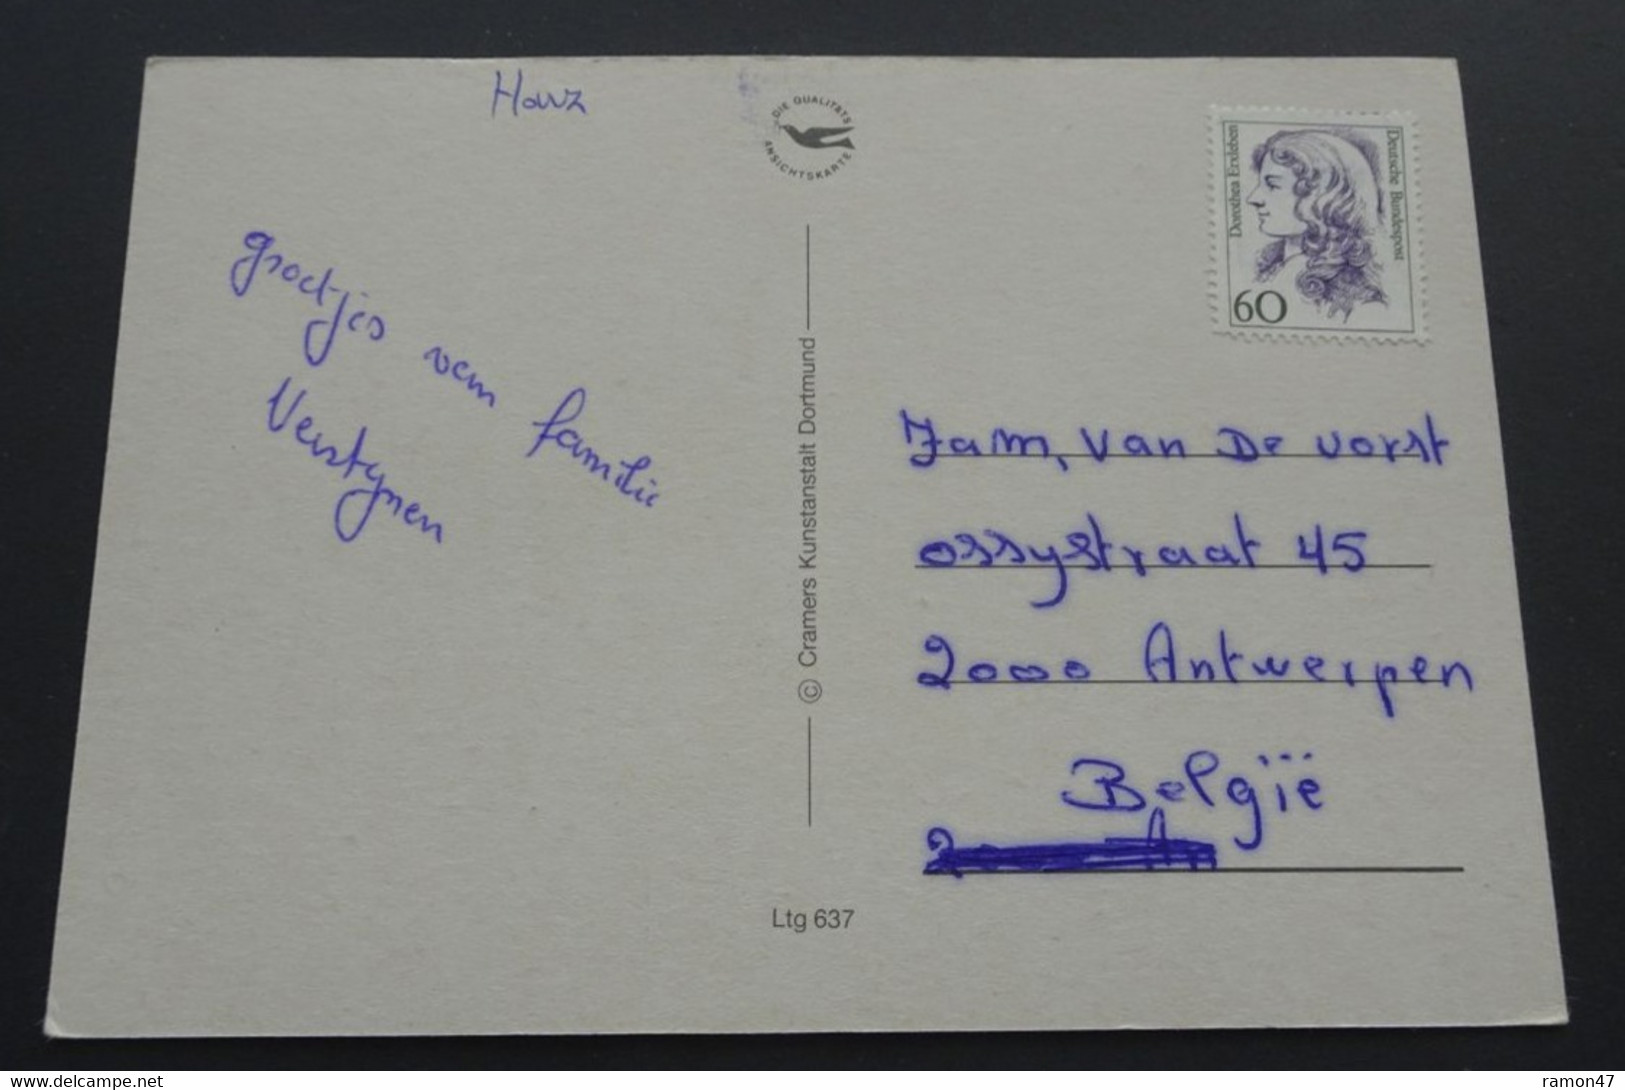 Harz
DIE QUALITÄTS
ANSICHTSKARTE
Deutsche Bundespost
Dorothea Erxleben
60
groetjes van familie
Verstynen
© Cramers Kunstanstalt Dortmund
Jam, Van De Vorst
ossystraat 45
2000 Antwerpen
België
Ltg 637
ramon47